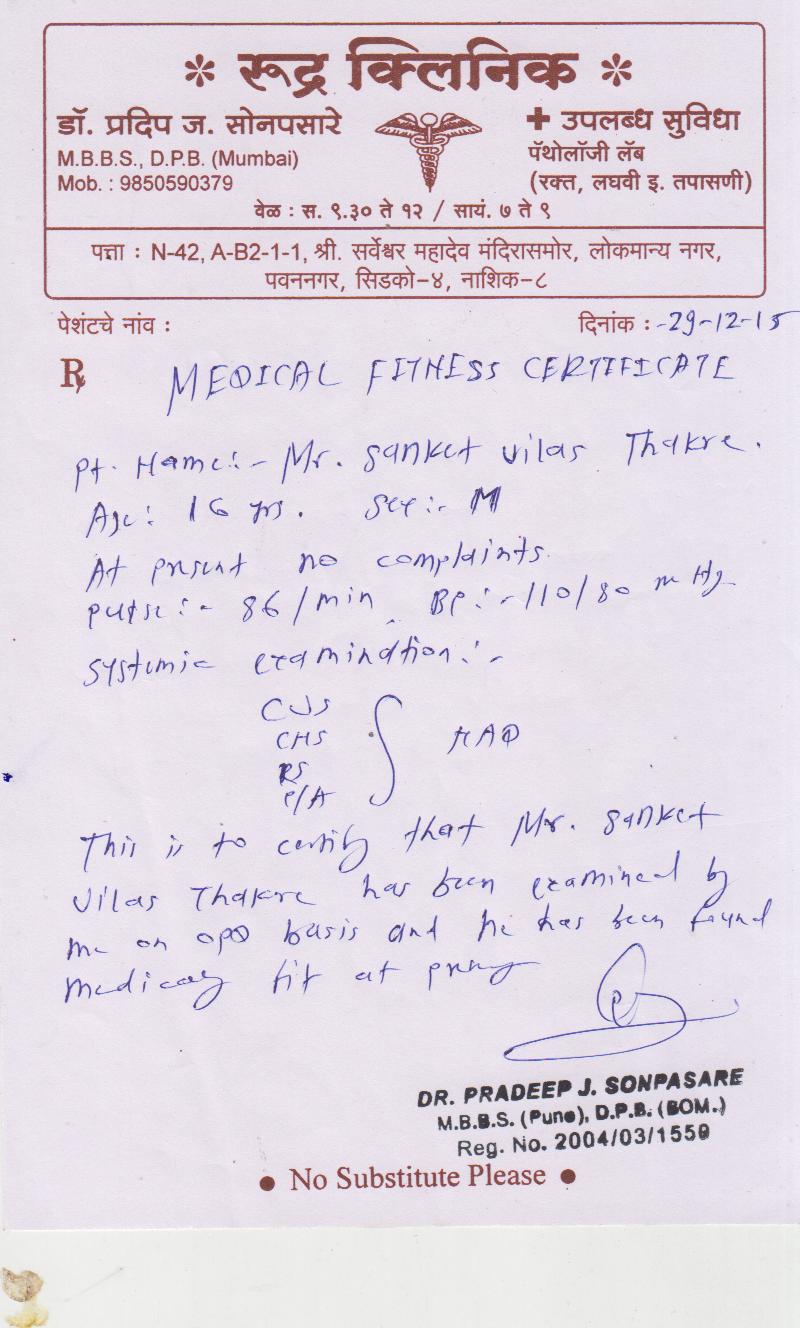 * रूद्र क्लिनिक *
डॉ. प्रदिप ज. सोनपसारे
M.B.B.S., D.P.B. (Mumbai)
Mob. : 9850590379
✚ उपलब्ध सुविधा
पॅथोलॉजी लॅब
(रक्त, लघवी इ. तपासणी)
वेळ : स. ९.३० ते १२ / सायं. ७ ते ९
पत्ता : N-42, A-B2-1-1, श्री. सर्वेश्वर महादेव मंदिरासमोर, लोकमान्य नगर,
पवननगर, सिडको-४, नाशिक-८
पेशंटचे नांव :
दिनांक : -29-12-15
R
MEDICAL FITNESS CERTIFICATE
Pt. Name:- Mr. Sanket Vilas Thakre.
Age: 16 yrs. Sex:- M
At present no complaints.
Pulse:- 86/min, BP:- 110/80 m Hg
Systemic examination:-
CVS
CNS
RS
P/A
NAD
This is to certify that Mr. Sanket
Vilas Thakre has been examined by
me on OPD basis and he has been found
medicaly fit at
DR. PRADEEP J. SONPASARE
M.B.B.S. (Pune), D.P.B. (BOM.)
Reg. No. 2004/03/1559
● No Substitute Please ●